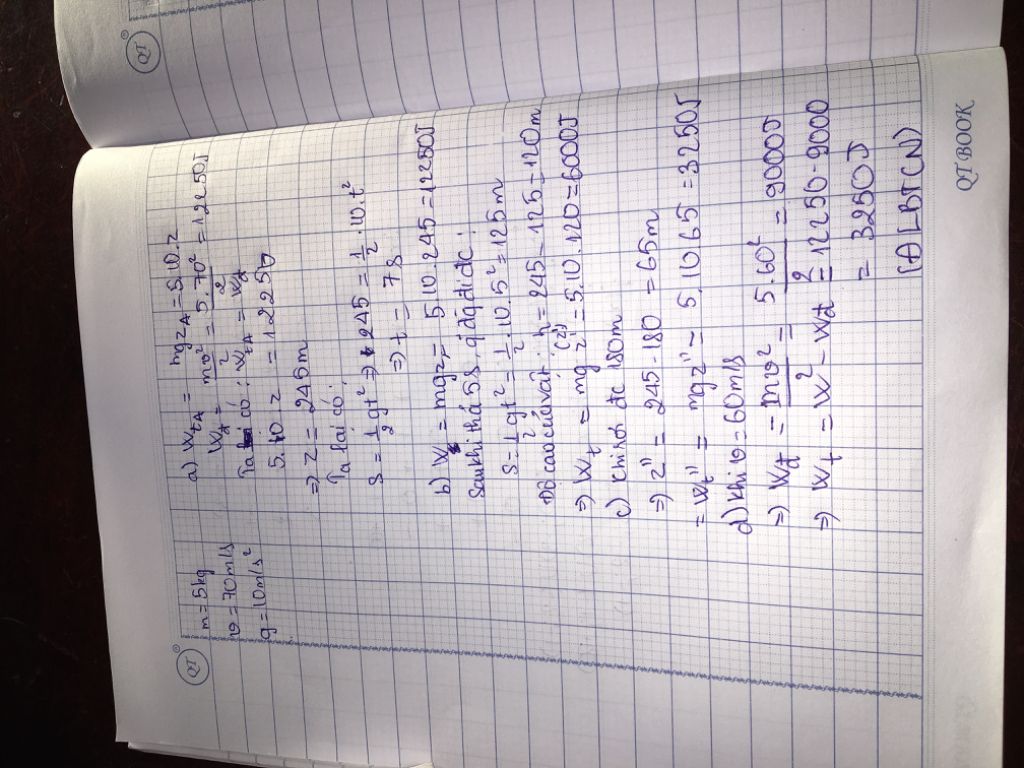 QT
QT
m = 5kg
v = 70m/s
g = 10m/s²
a) WtA = mgzA = 5.10.z
Wđ = mv²/2 = 5.70²/2 = 12250J
Ta có: WtA = Wđ
5.10.z = 12250
=> z = 245m
Ta lại có:
S = 1/2 gt² => 245 = 1/2 .10.t²
=> t = 7s
b) W = mgz = 5.10.245 = 12250J
Sau khi thả 5s, q đg đi đc:
S = 1/2 gt² = 1/2 .10.5² = 125m
Độ cao của vật: h = 245 - 125 = 120m
(z')
=> Wt = mgz' = 5.10.120 = 6000J
c) Khi rơi đc 180m
=> z" = 245 - 180 = 65m
= Wt" = mgz" = 5.10.65 = 3250J
d) Khi v = 60m/s
=> Wđ = mv²/2 = 5.60²/2 = 9000J
=> Wt = W - Wđ = 12250 - 9000
= 3250J
(A LBTCN)
QT BOOK